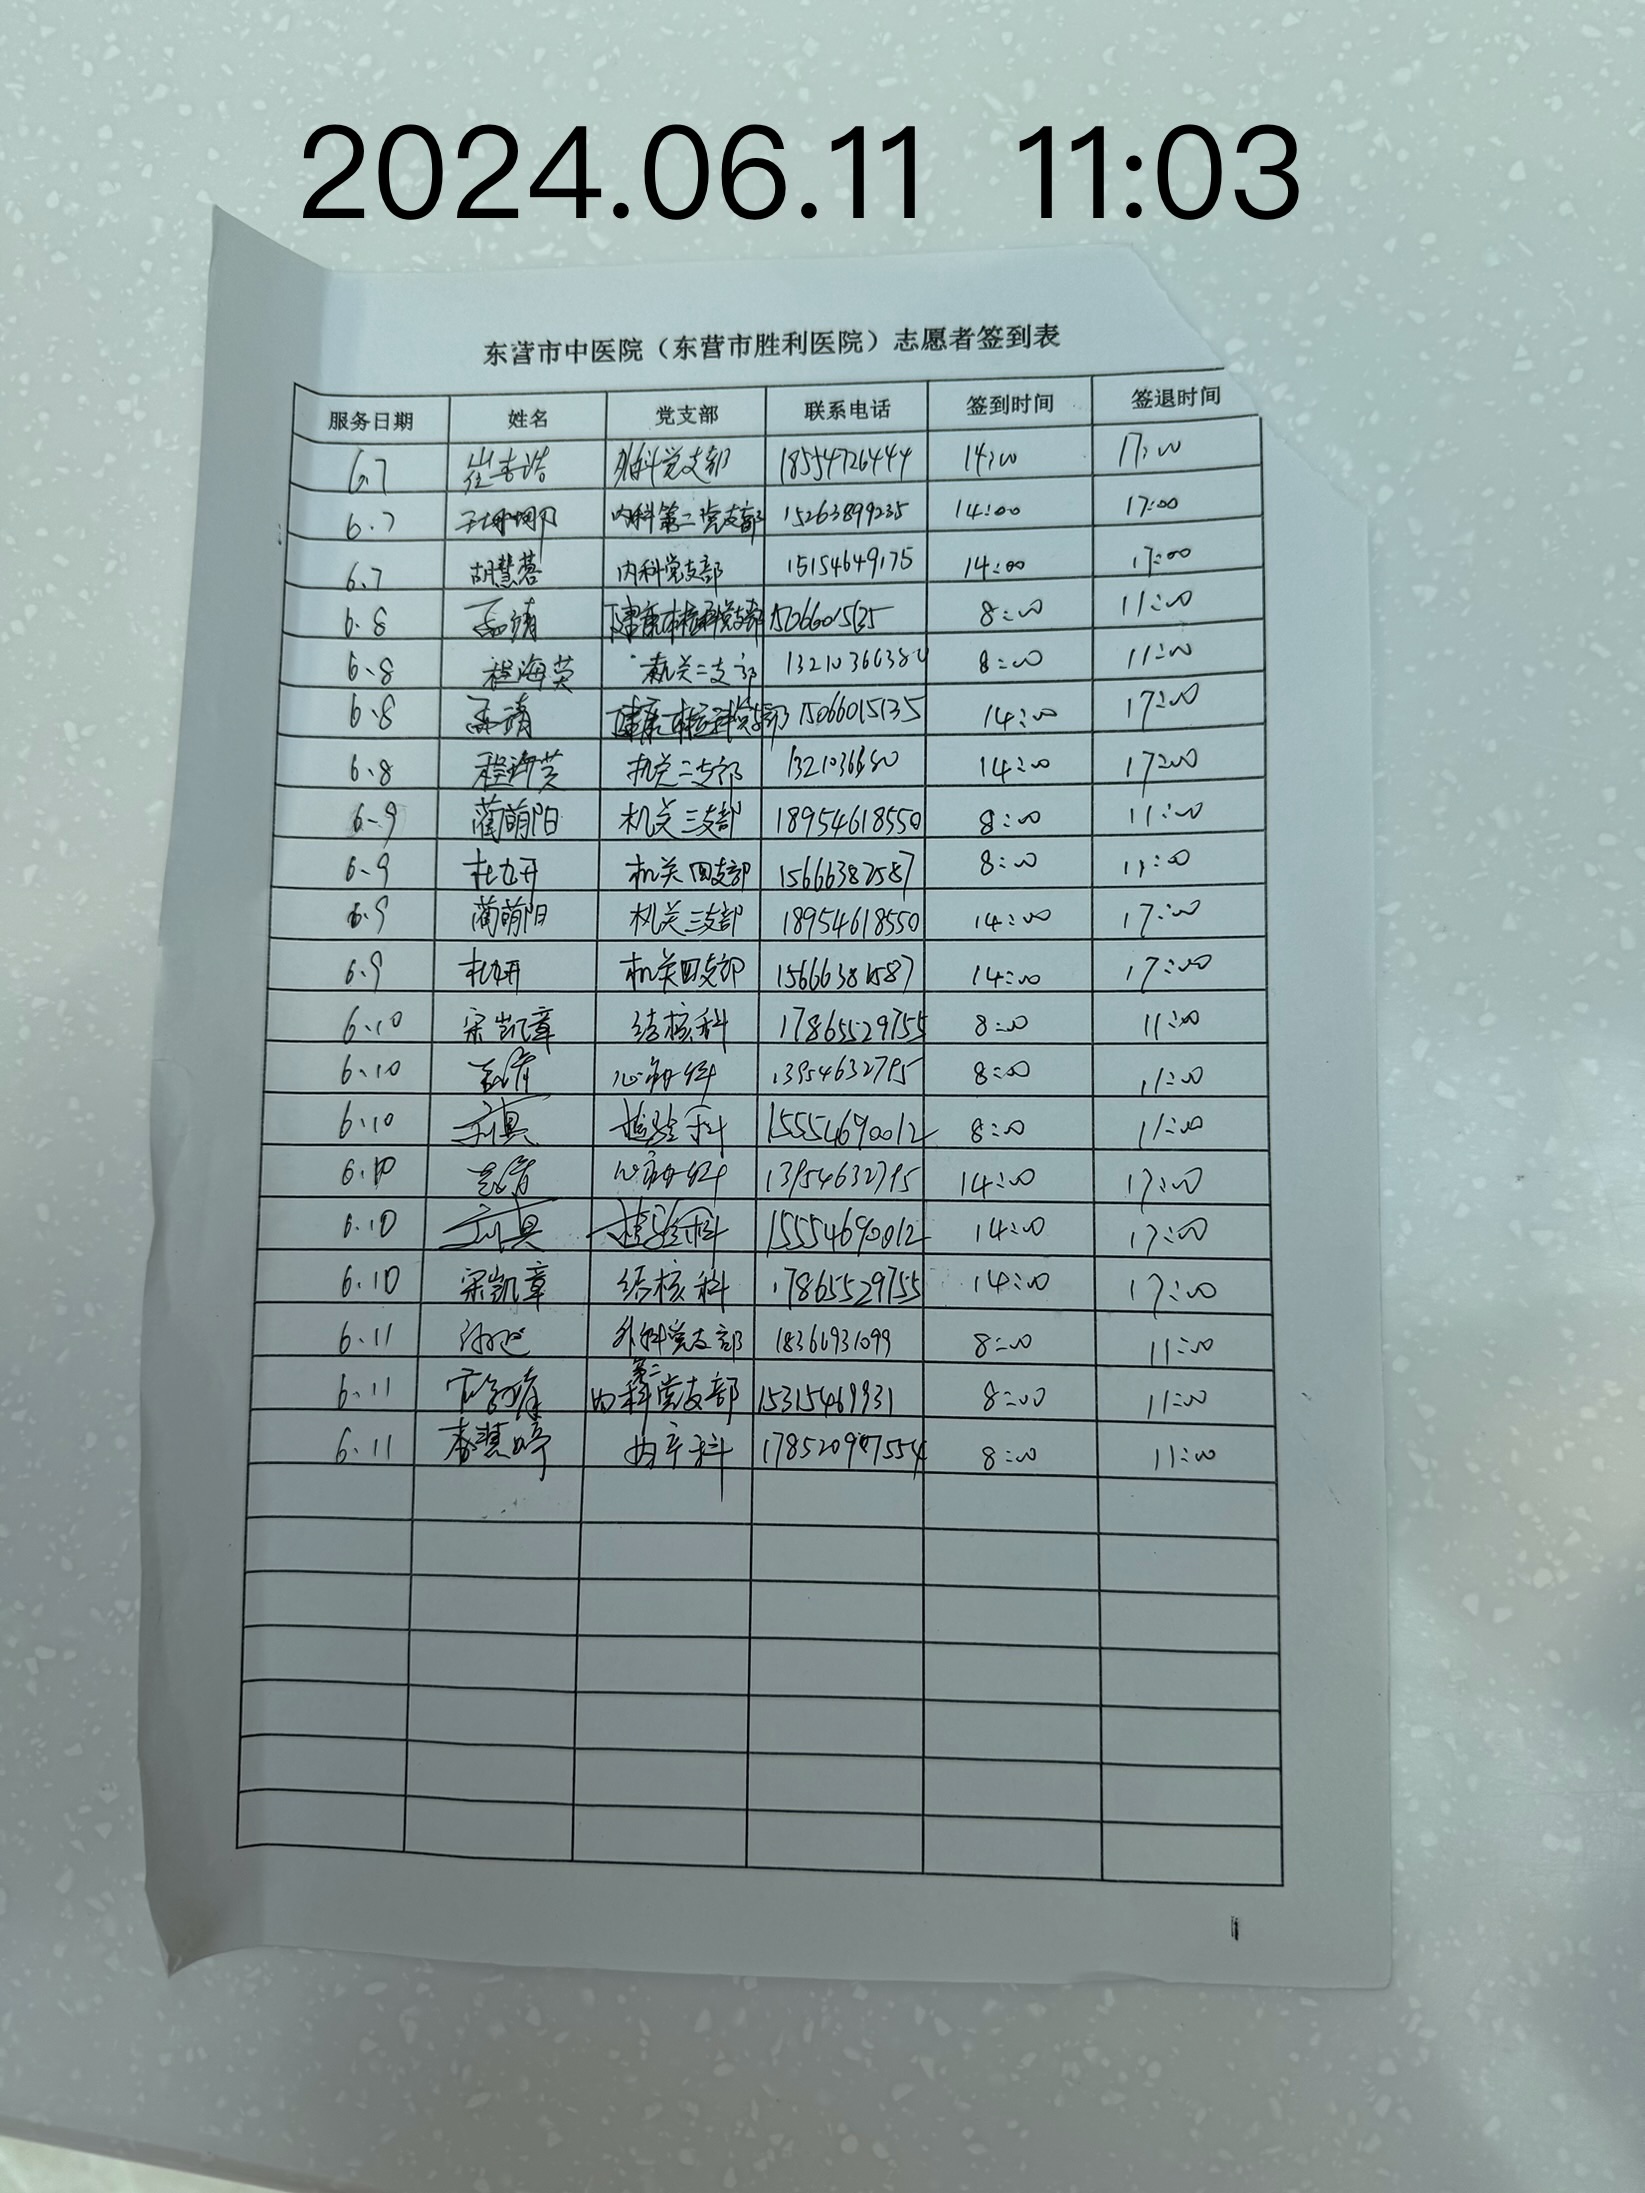 2024.06.11 11:03
东营市中医院（东营市胜利医院）志愿者签到表
服务日期 姓名 党支部 联系电话 签到时间 签退时间
6.7 外科党支部 18554726444 14:00 17:00
6.7 内科第二党支部 15263899235 14:00 17:00
6.7 胡慧蓉 内科党支部 15154649175 14:00 17:00
6.8 8:00 11:00
6.8 程海英 机关二支部 8:00 11:00
6.8 15066015135 14:00 17:00
6.8 程海英 机关二支部 14:00 17:00
6.9 蔺萌阳 机关三支部 18954618550 8:00 11:00
6.9 杜妍 机关四支部 8:00 11:00
6.9 蔺萌阳 机关三支部 18954618550 14:00 17:00
6.9 杜妍 机关四支部 14:00 17:00
6.10 宋凯章 结核科 17865529755 8:00 11:00
6.10 心内科 13954632795 8:00 11:00
6.10 检验科 15554690012 8:00 11:00
6.10 心内科 13954632795 14:00 17:00
6.10 检验科 15554690012 14:00 17:00
6.10 宋凯章 结核科 17865529755 14:00 17:00
6.11 外科党支部 8:00 11:00
6.11 内科第二党支部 15315469931 8:00 11:00
6.11 李慧婷 8:00 11:00